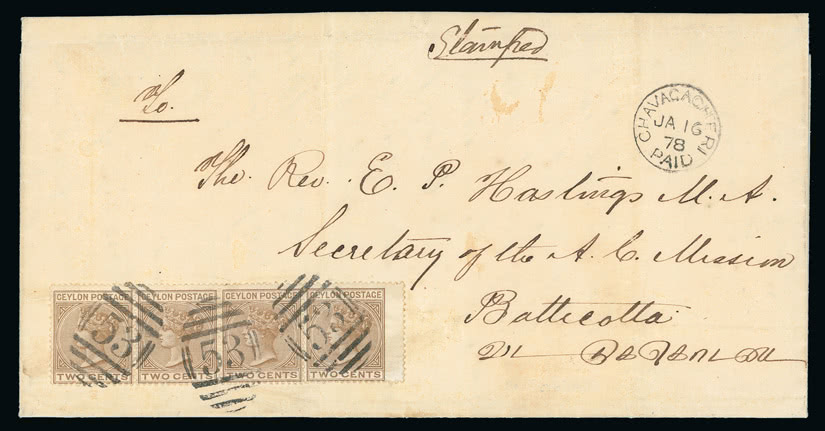 Stamped
To.
CHAVACACHERI
JA 16
78
PAID
The Rev. E. P. Hastings M. A.
Secretary of the A. C. Mission
Batticotta
CEYLON POSTAGE CEYLON POSTAGE CEYLON POSTAGE CEYLON POSTAGE
531
TWO CENTS TWO CENTS TWO CENTS TWO CENTS